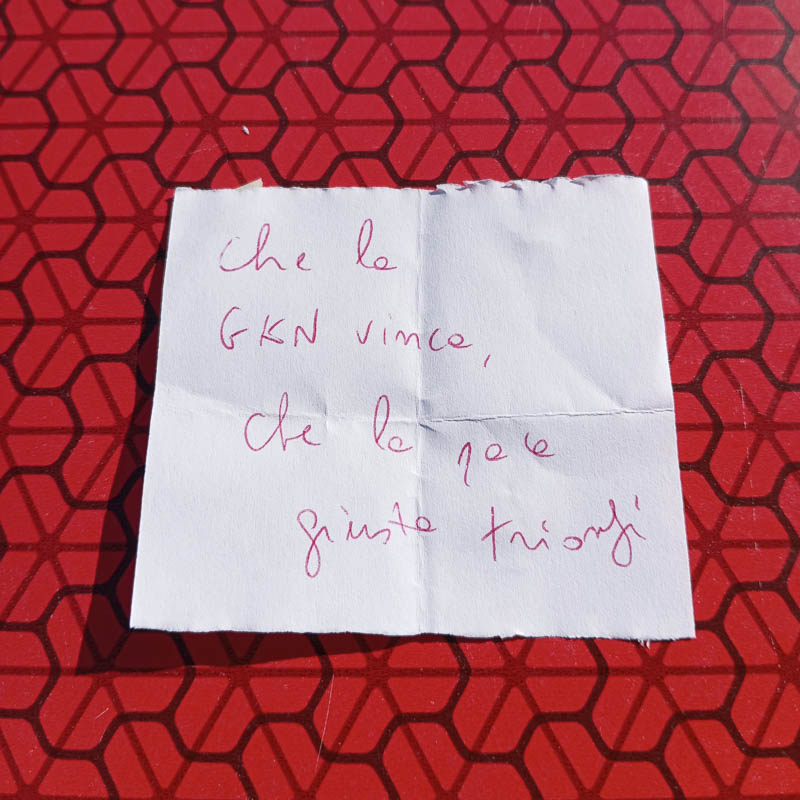 Che la
GKN vinca,
che la pace
giusta trionfi